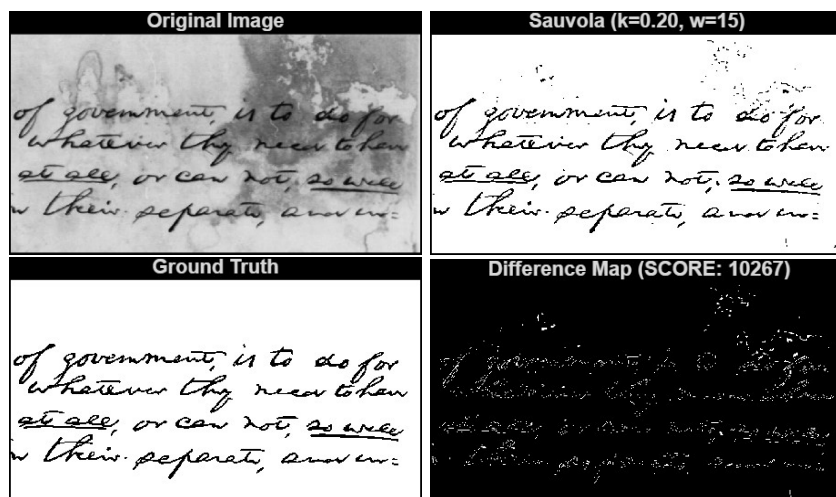 Original Image
of government, is to do for
whatever thy need to have
at all, or can not, so well
their separate, and in=
Sauvola (k=0.20, w=15)
of government, is to do for
whatever thy need to have
at all, or can not, so well
their separate, and in=
Ground Truth
of government, is to do for
whatever thy need to have
at all, or can not, so well
their separate, and in=
Difference Map (SCORE: 10267)